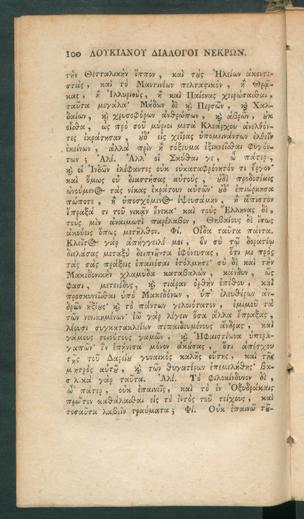 100 ΛΟΥΚΙΑΝΟΥ ΔΙΑΛΟΓΟΙ ΝΕΚΡΩΝ.
τὴν Θετταλικὴν ἵππον, καὶ τοὺς Ἠλείων ἀκοντι-
στὰς, καὶ τὸ Μαντινέων πελταστικὸν, ἢ Θρᾷ-
κας, ἢ Ἰλλυριοὺς, ἢ καὶ Παίονας χειρώσασθαι,
ταῦτα μεγάλα· Μήδων δὲ καὶ Περσῶν, καὶ Χαλ-
δαίων, καὶ χρυσοφόρων ἀνθρώπων, καὶ ἁβρῶν, οὐκ
οἶσθα, ὡς πρὸ σοῦ μύριοι μετὰ Κλεάρχου ἀνελθόν-
τες ἐκράτησαν, οὐδ' εἰς χεῖρας ὑπομεινάντων ἐλθεῖν
ἐκείνων, ἀλλὰ πρὶν ἢ τόξευμα ἐξικνεῖσθαι φυγόν-
των; Ἀλέ. Ἀλλ' οἱ Σκύθαι γε, ὦ πάτερ,
καὶ οἱ Ἰνδῶν ἐλέφαντες οὐκ εὐκαταφρόνητόν τι ἔργον·
καὶ ὅμως οὐ διαστήσας αὐτοὺς, οὐδὲ προδοσίαις
ὠνούμενος τὰς νίκας ἐκράτουν αὐτῶν· οὐδ' ἐπιώρκησα
πώποτε, ἢ ὑποσχόμενος ἐψευσάμην, ἢ ἄπιστον
ἔπραξά τι τοῦ νικᾶν ἕνεκα· καὶ τοὺς Ἕλληνας δὲ,
τοὺς μὲν ἀναιμωτὶ παρέλαβον, Θηβαίους δὲ ἴσως
ἀκούεις ὅπως μετῆλθον. Φί. Οἶδα ταῦτα πάντα.
Κλεῖτος γὰρ ἀπήγγειλέ μοι, ὃν σὺ τῷ δορατίῳ
διελάσας μεταξὺ δειπνοῦντα ἐφόνευσας, ὅτι με πρὸς
τὰς σὰς πράξεις ἐπαινέσαι ἐτόλμησε· σὺ δὲ καὶ τὴν
Μακεδονικὴν χλαμύδα καταβαλὼν, κάνδυν, ὥς
φασι, μετενέδυς, καὶ τιάραν ὀρθὴν ἐπέθου, καὶ
προσκυνεῖσθαι ὑπὸ Μακεδόνων, ὑπ' ἐλευθέρων ἀν-
δρῶν ἠξίους· καὶ τὸ πάντων γελοιότατον, ἐμιμοῦ τὰ
τῶν νενικημένων· ἐῶ γὰρ λέγειν ὅσα ἄλλα ἔπραξας,
λέουσι συγκατακλείων πεπαιδευμένους ἄνδρας, καὶ
γάμους τοιούτους γαμῶν, καὶ Ἡφαιστίωνα ὑπερα-
γαπῶν· ἓν ἐπῄνεσα μόνον ἀκούσας, ὅτι ἀπέσχου
τῆς τοῦ Δαρείου γυναικὸς καλῆς οὔσης, καὶ τῆς
μητρὸς αὐτοῦ, καὶ τῶν θυγατέρων ἐπεμελήθης· βα-
σιλικὰ γὰρ ταῦτα. Ἀλέ. Τὸ φιλοκίνδυνον δὲ,
ὦ πάτερ, οὐκ ἐπαινεῖς, καὶ τὸ ἐν Ὀξυδράκαις
πρῶτον καθαλέσθαι εἰς τὸ ἐντὸς τοῦ τείχους, καὶ
τοσαῦτα λαβεῖν τραύματα; Φί. Οὐκ ἐπαινῶ τοῦ-